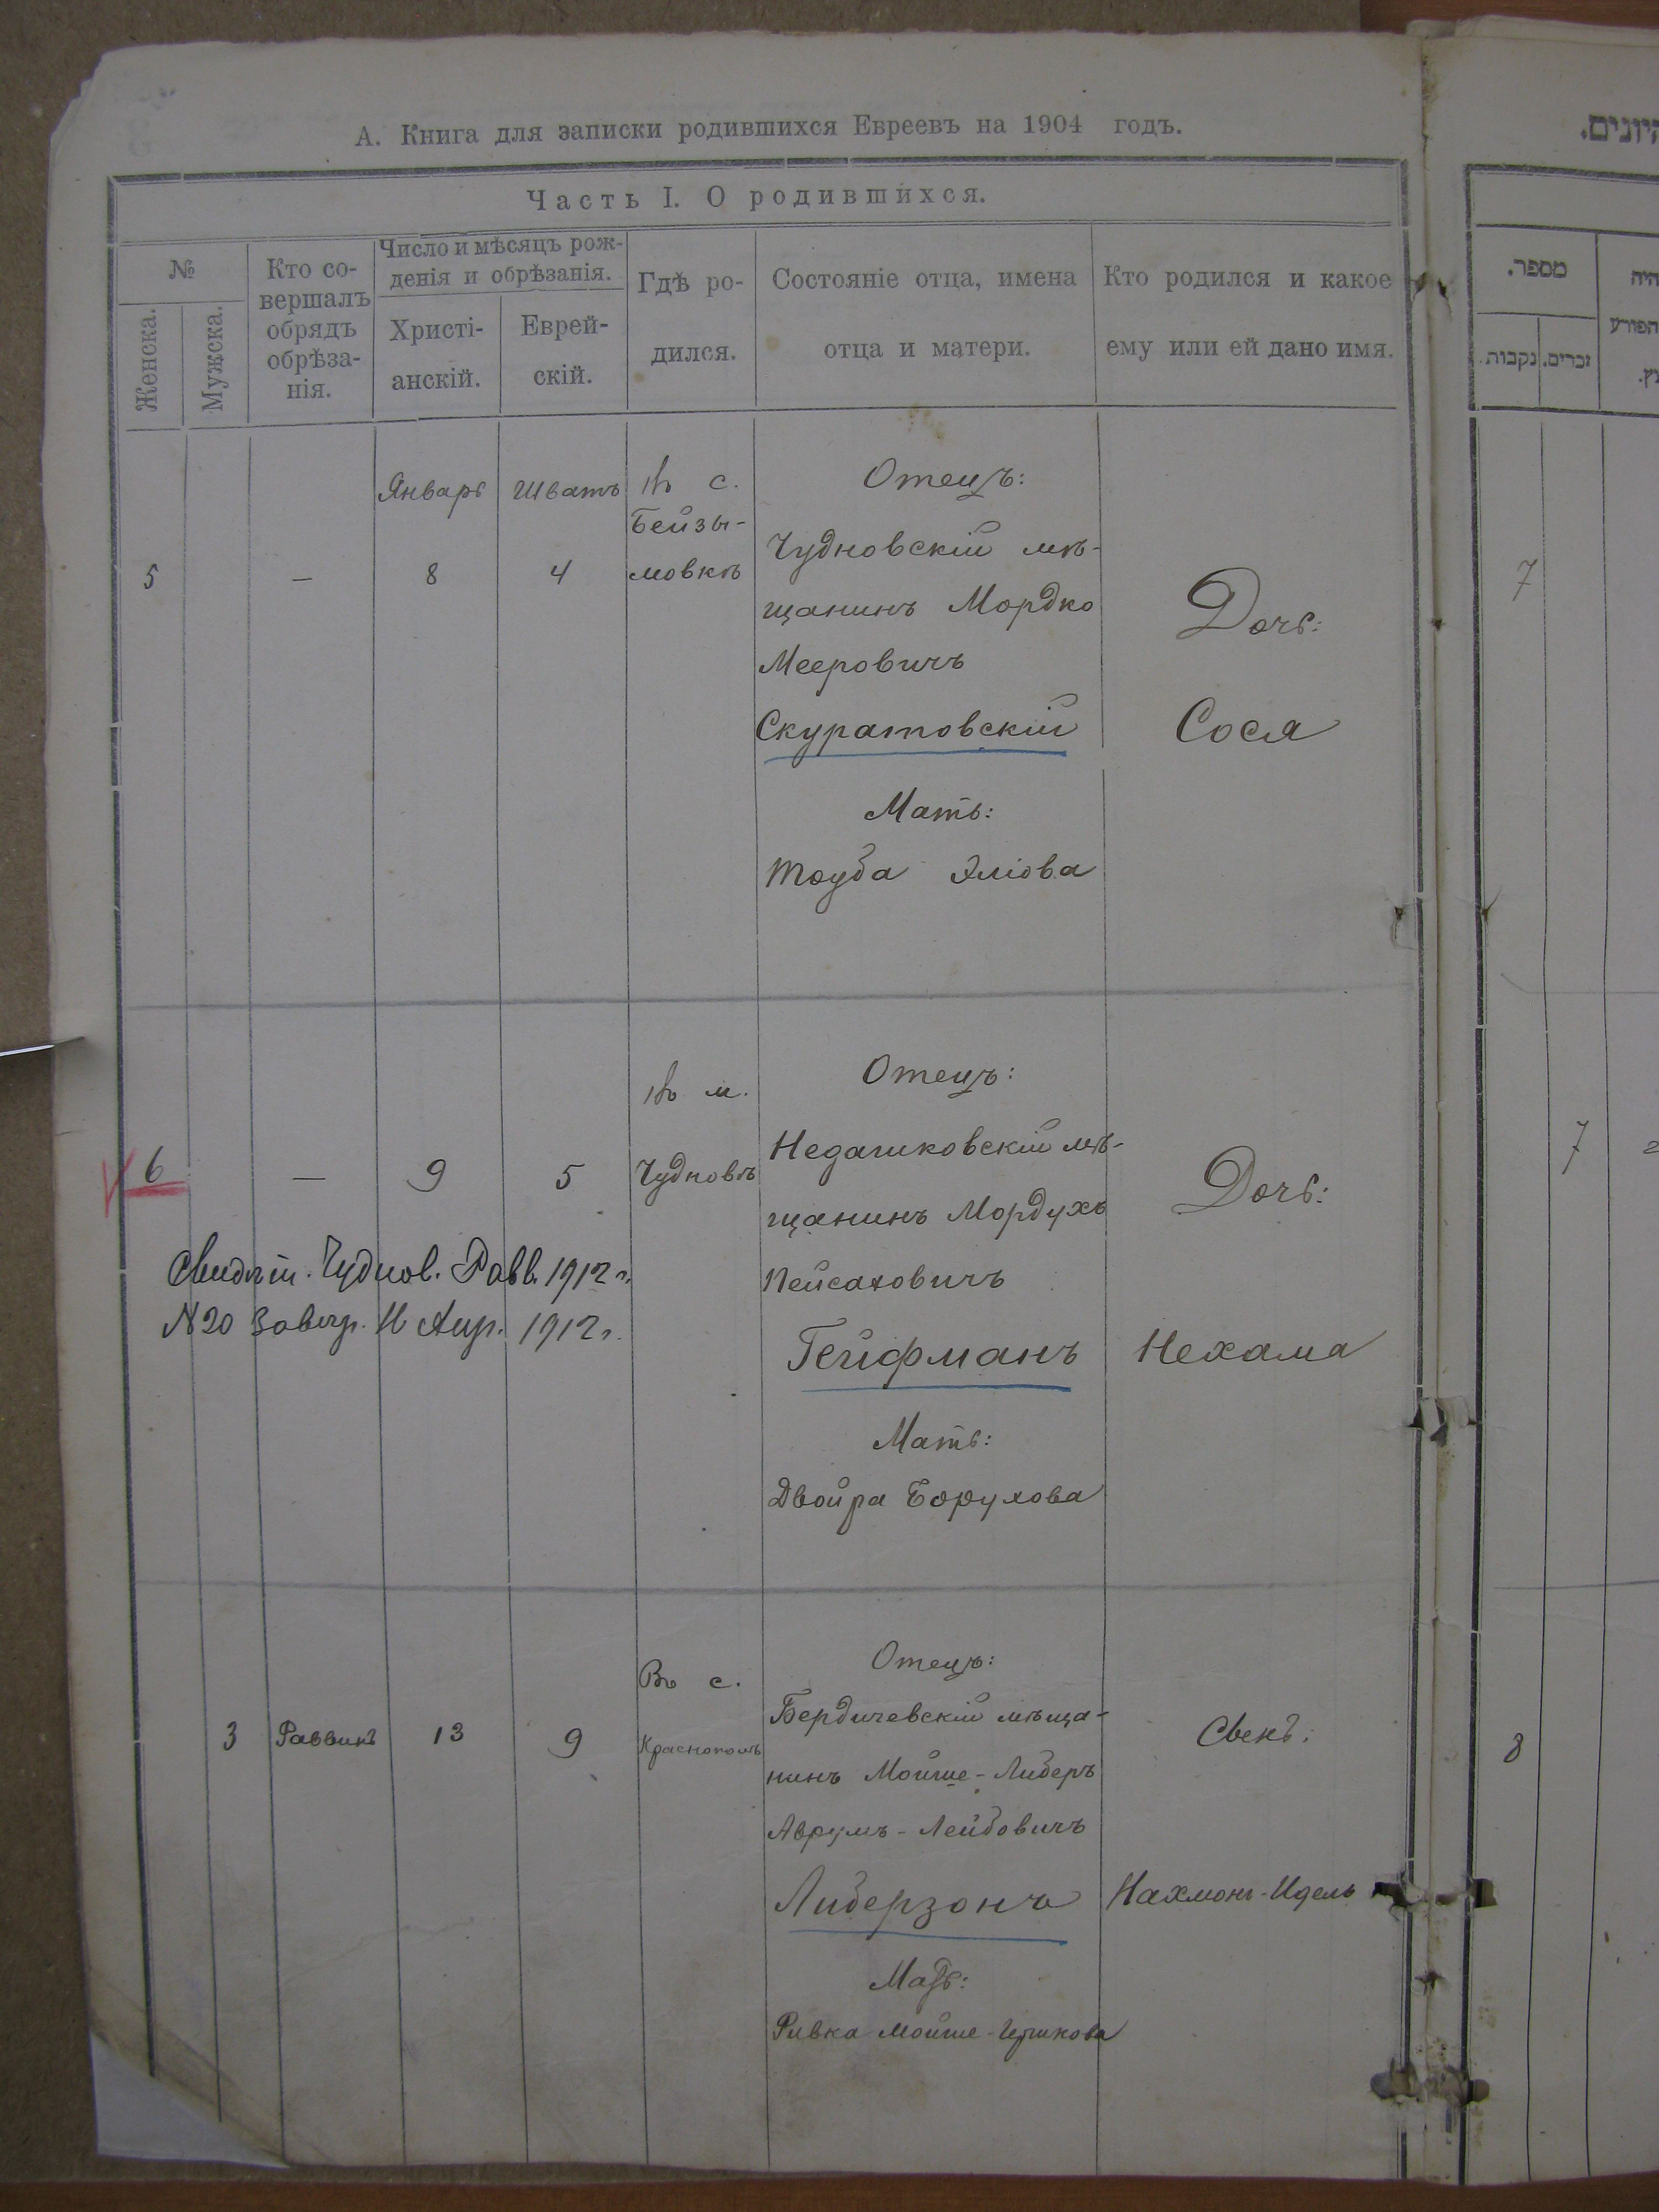 А. Книга для записки родившихся Евреевъ на 1904 годъ.
Часть I. О родившихся.
№
Женска.
Мужска.
Кто со-
вершалъ
обрядъ
обрѣза-
нія.
Число и мѣсяцъ рож-
денія и обрѣзанія.
Христі-
анскій.
Еврей-
скій.
Гдѣ ро-
дился.
Состояніе отца, имена
отца и матери.
Кто родился и какое
ему или ей дано имя.
5
—
Январь
8
Шватъ
4
Въ с.
Бейзы-
мовкѣ
Отецъ:
Чудновскій мѣ-
щанинъ Мордко
Мееровичъ
Скуратовскій
Мать:
Тоуба Эліова
Дочь:
Сося
6
—
9
5
Въ м.
Чудновѣ
Отецъ:
Недашковскій мѣ-
щанинъ Мордухъ
Пейсаховичъ
Гейфманъ
Мать:
Двойра Борухова
Дочь:
Нехама
Свидѣт. Чуднов. Равв. 1912 г.
№ 20 Апр. 1912 г.
3
Раввинъ
13
9
Въ с.
Краснополѣ
Отецъ:
Бердичевскій мѣща-
нинъ Мойше-Либеръ
Аврумъ-Лейбовичъ
Либерзонъ
Мать:
Ривка Мойше-Ицкова
Сынъ:
Нахмонъ-Идель
היונים.
מספר.
נקבות.
זכרים.
היה
הפורע
7
7
8